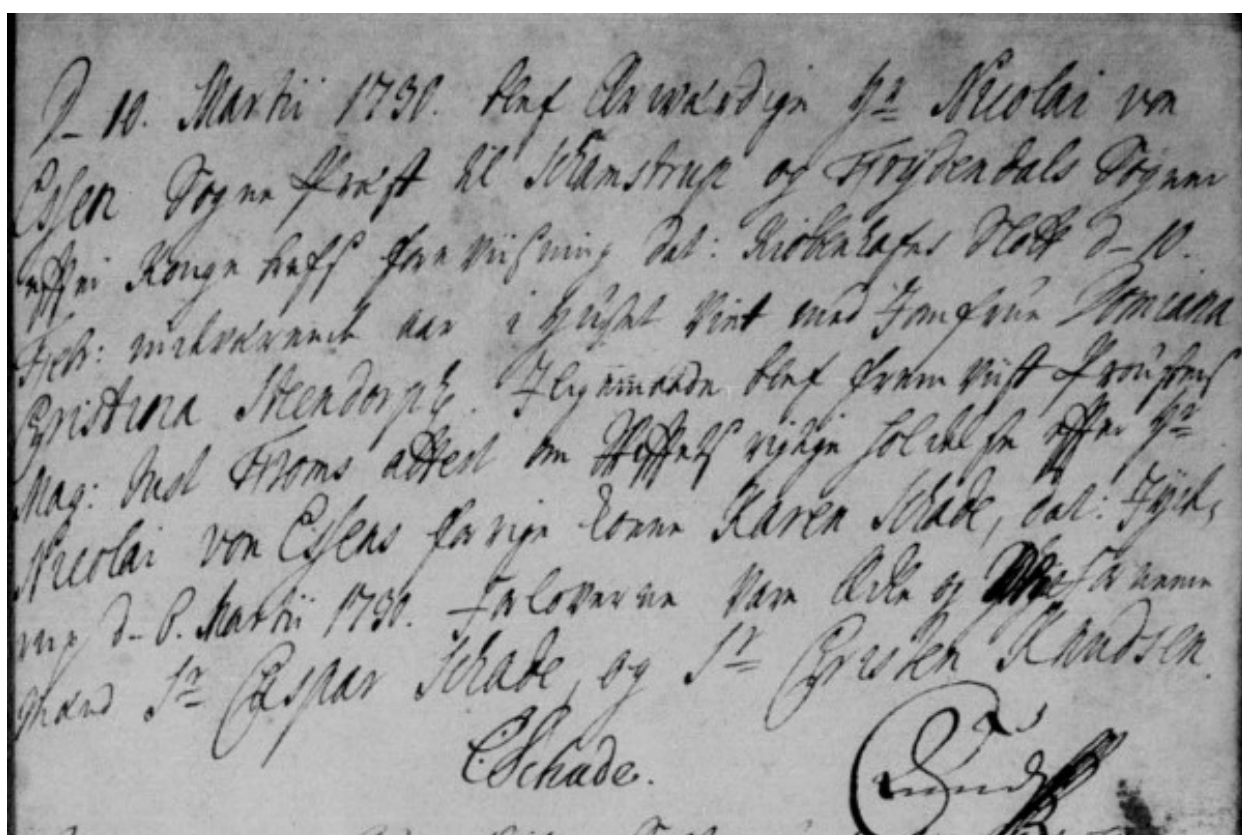 D_ 10. Martii 1730. blef Ærwærdige Hr Nicolai von
Essen Sogne Præst til Skamstrup og Frydendals Sogner
efter Konge brefs foreviisning Dat: Kiøbenhafns Slott d_ 10.
Febr: indeværende aar i Huuset Viet med Jomfrue
Christina Stendorph. Iligemaade blef frem viist Proustens
Mag: Just Froms attest om Skiftets rigtige holdelse efter Hr
Nicolai von Essens forige kone Karen Schade, dat:
d_ 6. Martii 1730. Forloverne vare Ædle og fornemme
Mænd Sr Caspar Schade, og Sr Christen Knudsen.
C Schade.